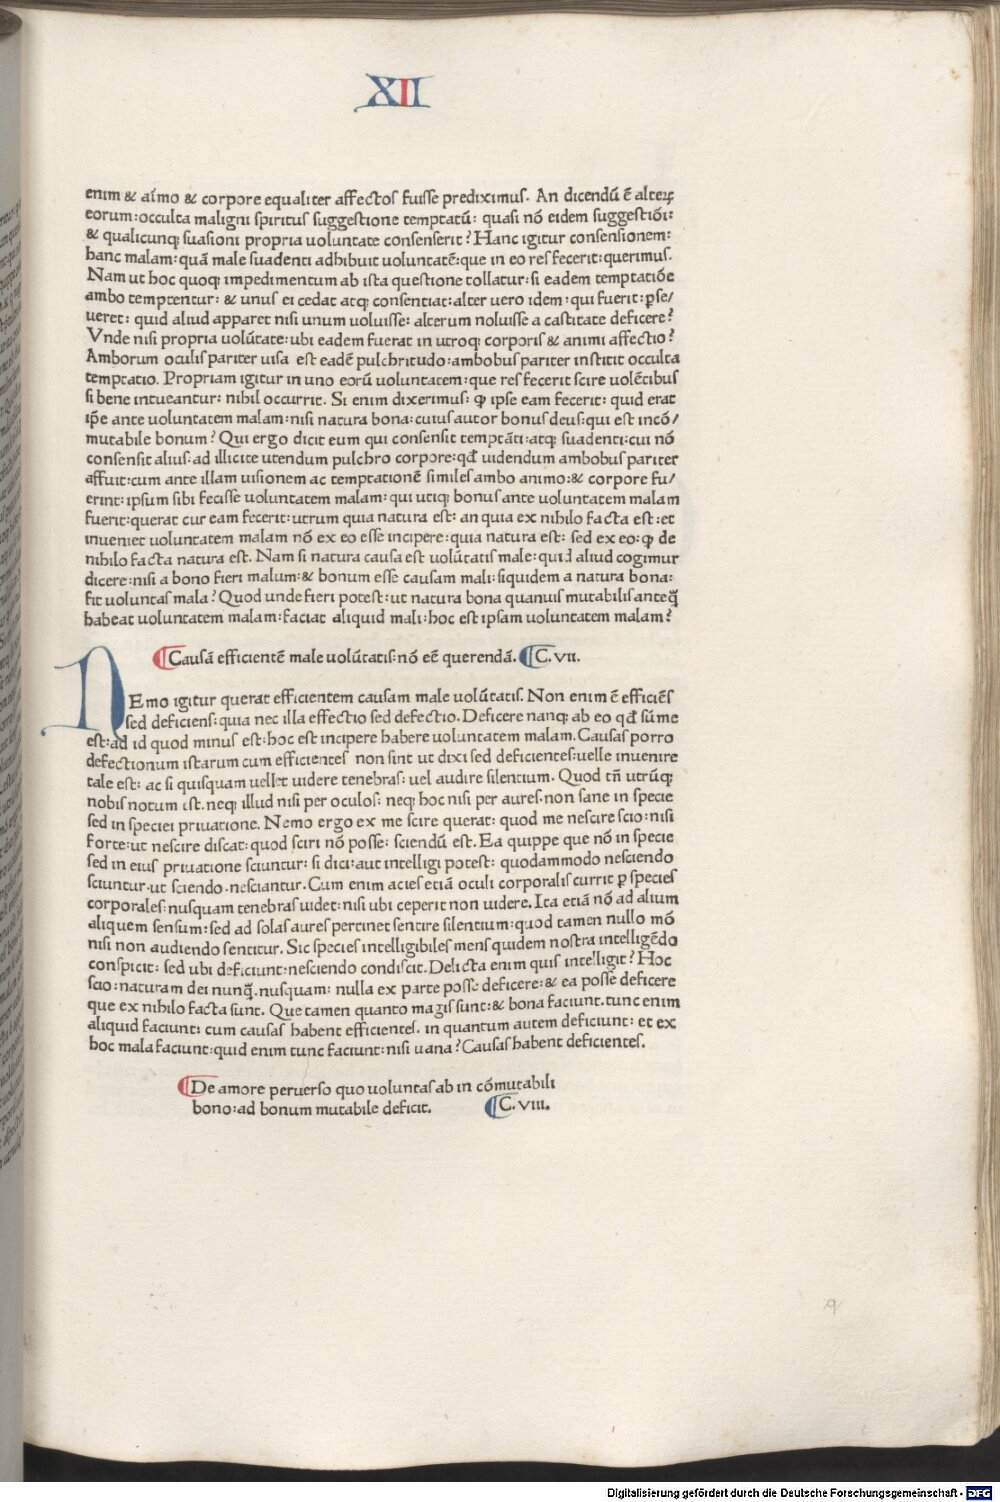 XII
enim & aĩmo & corpore equaliter affectos fuisse prediximus. An dicendũ ẽ alteꝝ
eorum:occulta maligni spiritus suggestione temptatũ: quasi nõ eidem suggestiõi:
& qualicunqꝫ suasioni propria uoluntate consenserit? Hanc igitur consensionem:
hanc malam:quã male suadenti adhibuit uoluntatẽ:que in eo res fecerit:querimus.
Nam ut hoc quoqꝫ impedimentum ab ista questione tollatur:si eadem temptatiõe
ambo temptentur: & unus ei cedat atqꝫ consentiat:alter uero idem:qui fuerit:ꝑse/
ueret: quid aliud apparet nisi unum uoluisse: alterum noluisse a castitate deficere?
Vnde nisi propria uolũtate:ubi eadem fuerat in utroqꝫ corporis & animi affectio?
Amborum oculis pariter uisa est eadẽ pulchritudo:ambobus pariter institit occulta
temptatio. Propriam igitur in uno eorũ uoluntatem:que res fecerit scire uolẽtibus
si bene intueantur: nihil occurrit. Si enim dixerimus: ꝙ ipse eam fecerit: quid erat
ip̃e ante uoluntatem malam:nisi natura bona:cuius autor bonus deus:qui est incõ/
mutabile bonum? Qui ergo dicit eum qui consensit temptãti:atqꝫ suadenti:cui nõ
consensit alius:ad illicite utendum pulchro corpore:qđ uidendum ambobus pariter
affuit:cum ante illam uisionem ac temptationẽ similes ambo animo:& corpore fu/
erint:ipsum sibi fecisse uoluntatem malam:qui utiqꝫ bonus ante uoluntatem malam
fuerit:querat cur eam fecerit:utrum quia natura est:an quia ex nihilo facta est:et
inueniet uoluntatem malam nõ ex eo esse incipere:quia natura est: sed ex eo:ꝙ de
nihilo facta natura est. Nam si natura causa est uolũtatis male:quid aliud cogimur
dicere:nisi a bono fieri malum:& bonum esse causam mali:siquidem a natura bona:
fit uoluntas mala? Quod unde fieri potest:ut natura bona quanuis mutabilis anteq̃
habeat uoluntatem malam:faciat aliquid mali:hoc est ipsam uoluntatem malam?
¶Causã efficientẽ male uolũtatis:nõ eẽ querendã. ¶C.VII.
NEmo igitur querat efficientem causam male uolũtatis. Non enim ẽ efficiẽs
sed deficiens:quia nec illa effectio sed defectio.Deficere nanqꝫ ab eo qđ sũme
est:ad id quod minus est:hoc est incipere habere uoluntatem malam.Causas porro
defectionum istarum cum efficientes non sint ut dixi sed deficientes:uelle inuenire
tale est: ac si quisquam uellet uidere tenebras: uel audire silentium. Quod tñ utrũqꝫ
nobis notum ist.neqꝫ illud nisi per oculos: neqꝫ hoc nisi per aures.non sane in specie
sed in speciei priuatione. Nemo ergo ex me scire querat: quod me nescire scio:nisi
forte:ut nescire discat:quod sciri nõ posse: sciendũ est. Ea quippe que nõ in specie
sed in eius priuatione sciuntur: si dici:aut intelligi potest: quodammodo nesciendo
sciuntur.ut sciendo.nesciantur.Cum enim acies etiã oculi corporalis currit ꝑ species
corporales:nusquam tenebras uidet:nisi ubi ceperit non uidere.Ita etiã nõ ad alium
aliquem sensum:sed ad solas aures pertinet sentire silentium:quod tamen nullo mõ
nisi non audiendo sentitur. Sic species intelligibiles mens quidem nostra intelligẽdo
conspicit: sed ubi deficiunt:nesciendo condiscit.Delicta enim quis intelligit? Hoc
scio:naturam dei nunq̃.nusquam: nulla ex parte posse deficere:& ea posse deficere
que ex nihilo facta sunt. Que tamen quanto magis sunt:& bona faciunt.tunc enim
aliquid faciunt: cum causas habent efficientes. in quantum autem deficiunt: et ex
hoc mala faciunt:quid enim tunc faciunt:nisi uana? Causas habent deficientes.
¶De amore peruerso quo uoluntas ab in cõmutabili
bono:ad bonum mutabile deficit. ¶C.VIII.
9
Digitalisierung gefördert durch die Deutsche Forschungsgemeinschaft - DFG